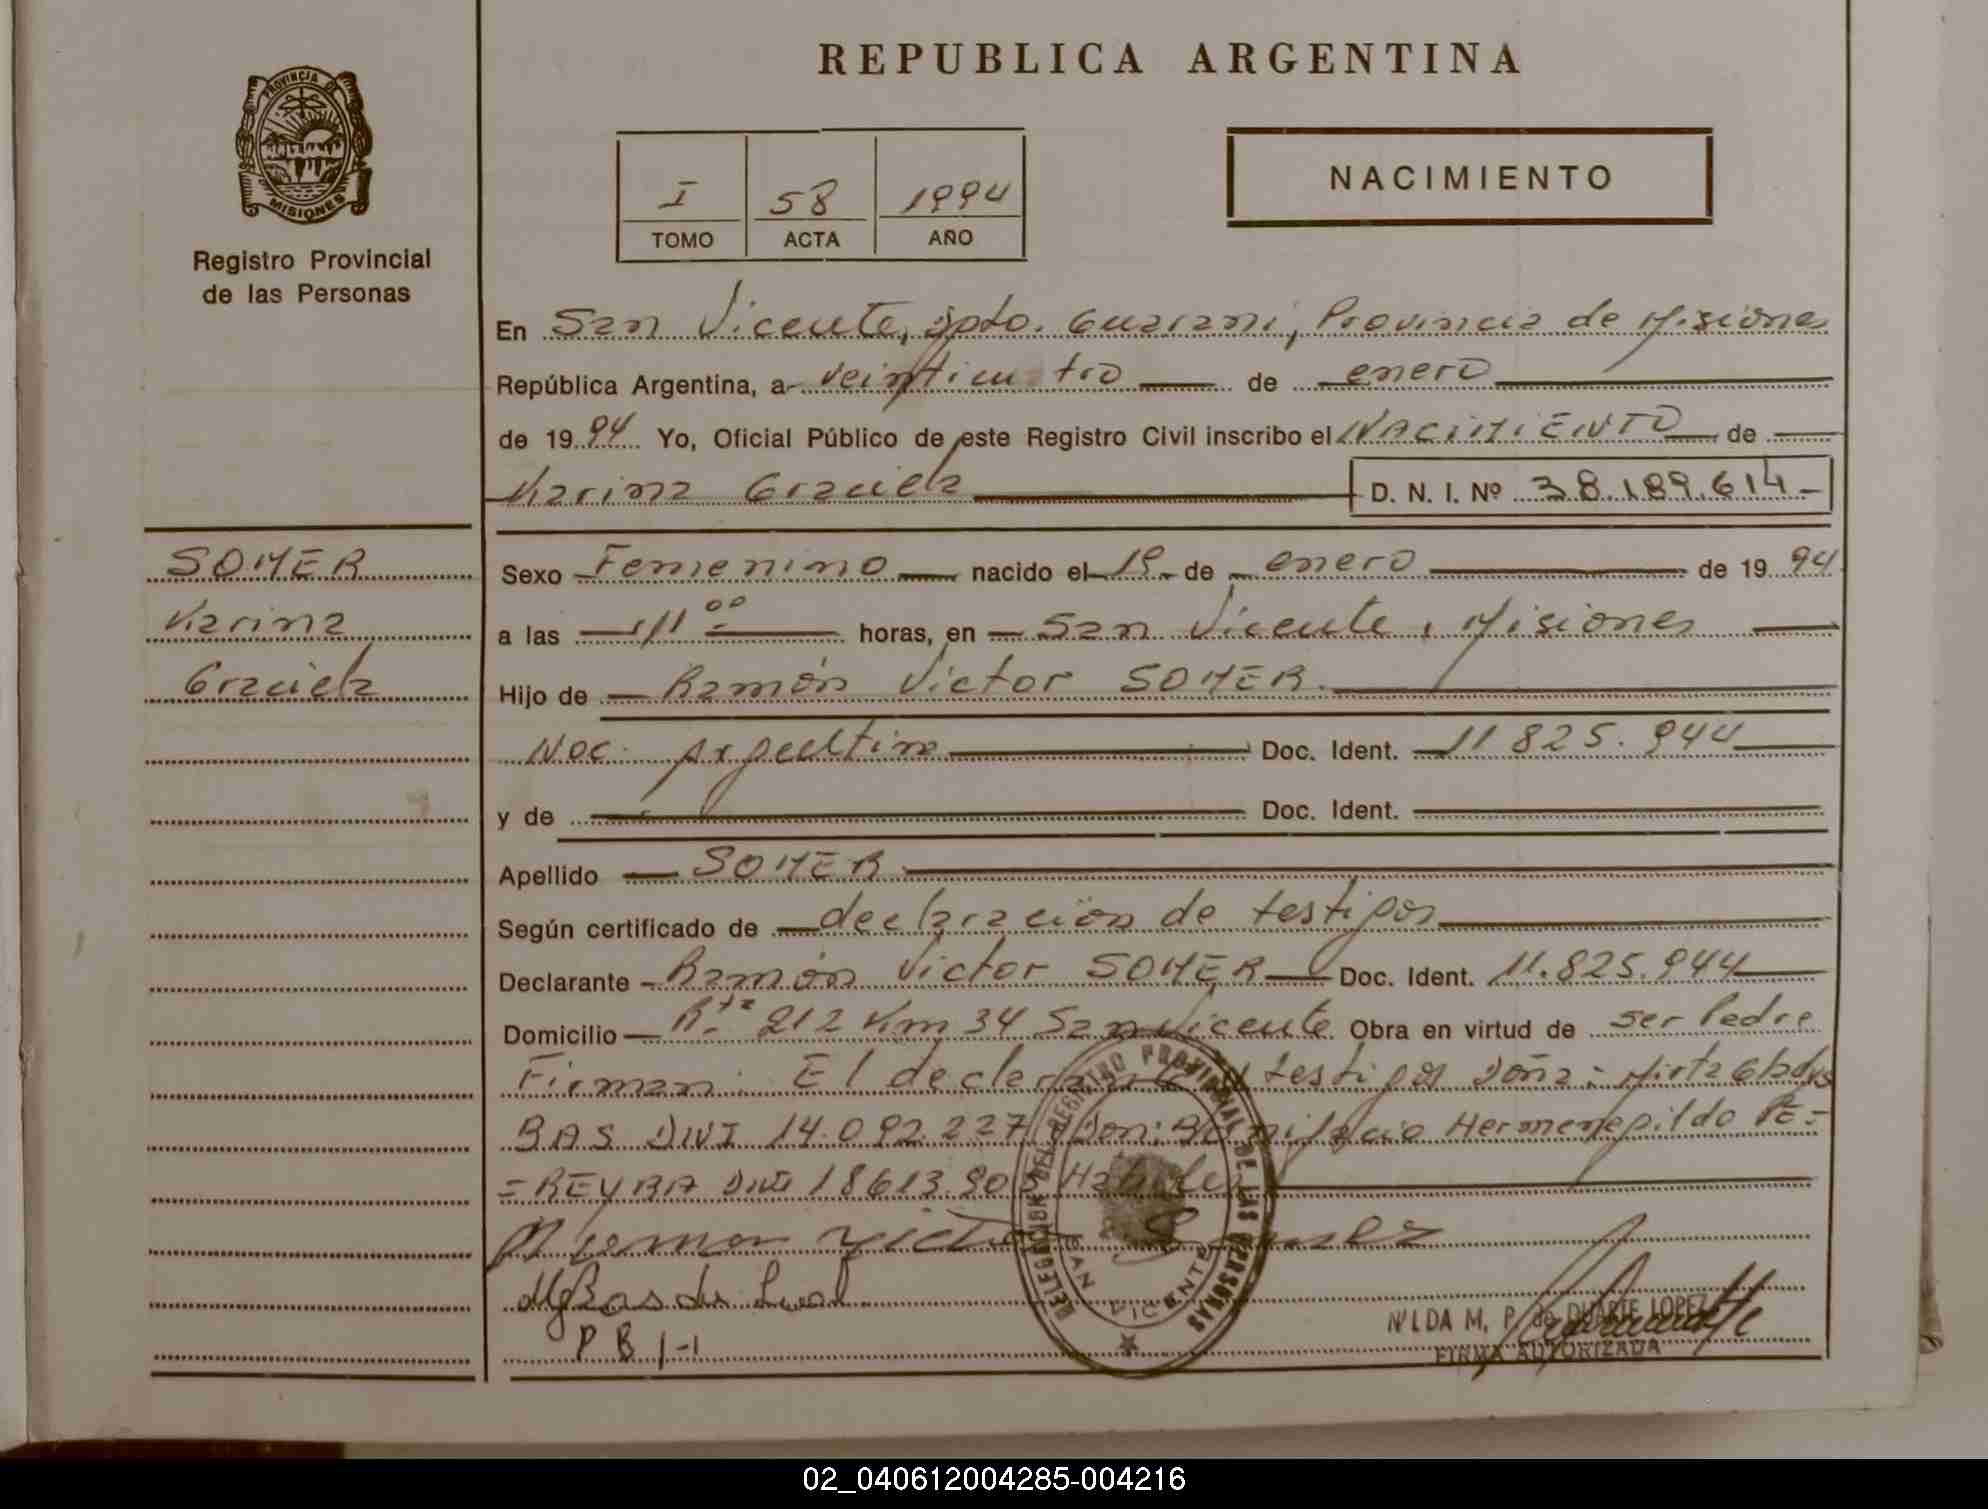 REPUBLICA ARGENTINA
PROVINCIA DE
MISIONES
Registro Provincial
de las Personas
I 58 1994
TOMO ACTA AÑO
NACIMIENTO
En San Vicente, Dpto. Guarani, Provincia de Misiones
República Argentina, a veinticuatro de enero
de 1994 Yo, Oficial Público de este Registro Civil inscribo el NACIMIENTO de
Karina Graciela D. N. I. Nº 38.189.614
SOMER
Karina
Graciela
Sexo Femenino nacido el 19 de enero de 1994
a las 11 00 horas, en San Vicente, Misiones
Hijo de Ramón Victor SOMER
Nac. Argentina Doc. Ident. 11 825.944
y de Doc. Ident.
Apellido SOMER
Según certificado de declaración de testigos
Declarante Ramón Victor SOMER Doc. Ident. 11.825.944
Domicilio Rta 212 Km 34 San Vicente Obra en virtud de ser Padre
Firman: El declarante y testigos Doña: Mirta Gladys
BAS DNI 14.092.227 Don: Bonifacio Hermenegildo PE=
=REYRA DNI 18613.903
Ramon Victor
MGBas de Leal
P B 1-1
DELEGACION DEL REGISTRO PROVINCIAL DE LAS PERSONAS
SAN VICENTE
NILDA M. P. de DUARTE LOPEZ
FIRMA AUTORIZADA
02_040612004285-004216